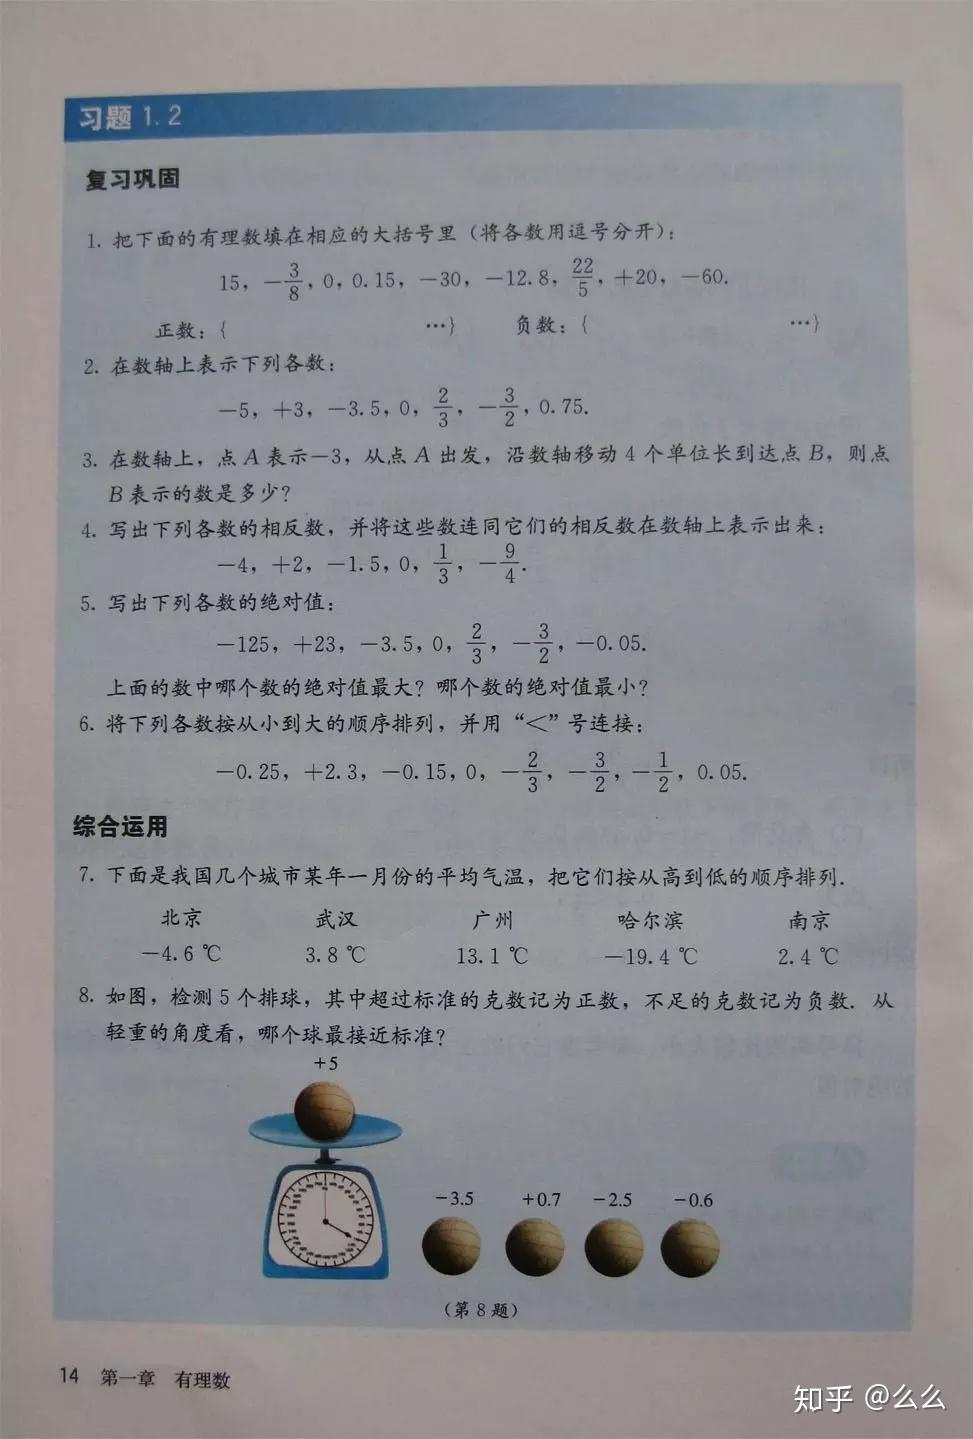 习题 1.2
复习巩固
1. 把下面的有理数填在相应的大括号里（将各数用逗号分开）：
15，-3/8，0，0.15，-30，-12.8，22/5，+20，-60.
正数：{ …} 负数：{ …}
2. 在数轴上表示下列各数：
-5，+3，-3.5，0，2/3，-3/2，0.75.
3. 在数轴上，点 A 表示-3，从点 A 出发，沿数轴移动 4 个单位长到达点 B，则点
B 表示的数是多少？
4. 写出下列各数的相反数，并将这些数连同它们的相反数在数轴上表示出来：
-4，+2，-1.5，0，1/3，-9/4.
5. 写出下列各数的绝对值：
-125，+23，-3.5，0，2/3，-3/2，-0.05.
上面的数中哪个数的绝对值最大？哪个数的绝对值最小？
6. 将下列各数按从小到大的顺序排列，并用“<”号连接：
-0.25，+2.3，-0.15，0，-2/3，-3/2，-1/2，0.05.
综合运用
7. 下面是我国几个城市某年一月份的平均气温，把它们按从高到低的顺序排列.
北京 武汉 广州 哈尔滨 南京
-4.6 ℃ 3.8 ℃ 13.1 ℃ -19.4 ℃ 2.4 ℃
8. 如图，检测 5 个排球，其中超过标准的克数记为正数，不足的克数记为负数. 从
轻重的角度看，哪个球最接近标准？
+5
-3.5 +0.7 -2.5 -0.6
（第 8 题）
14 第一章 有理数
知乎 @么么